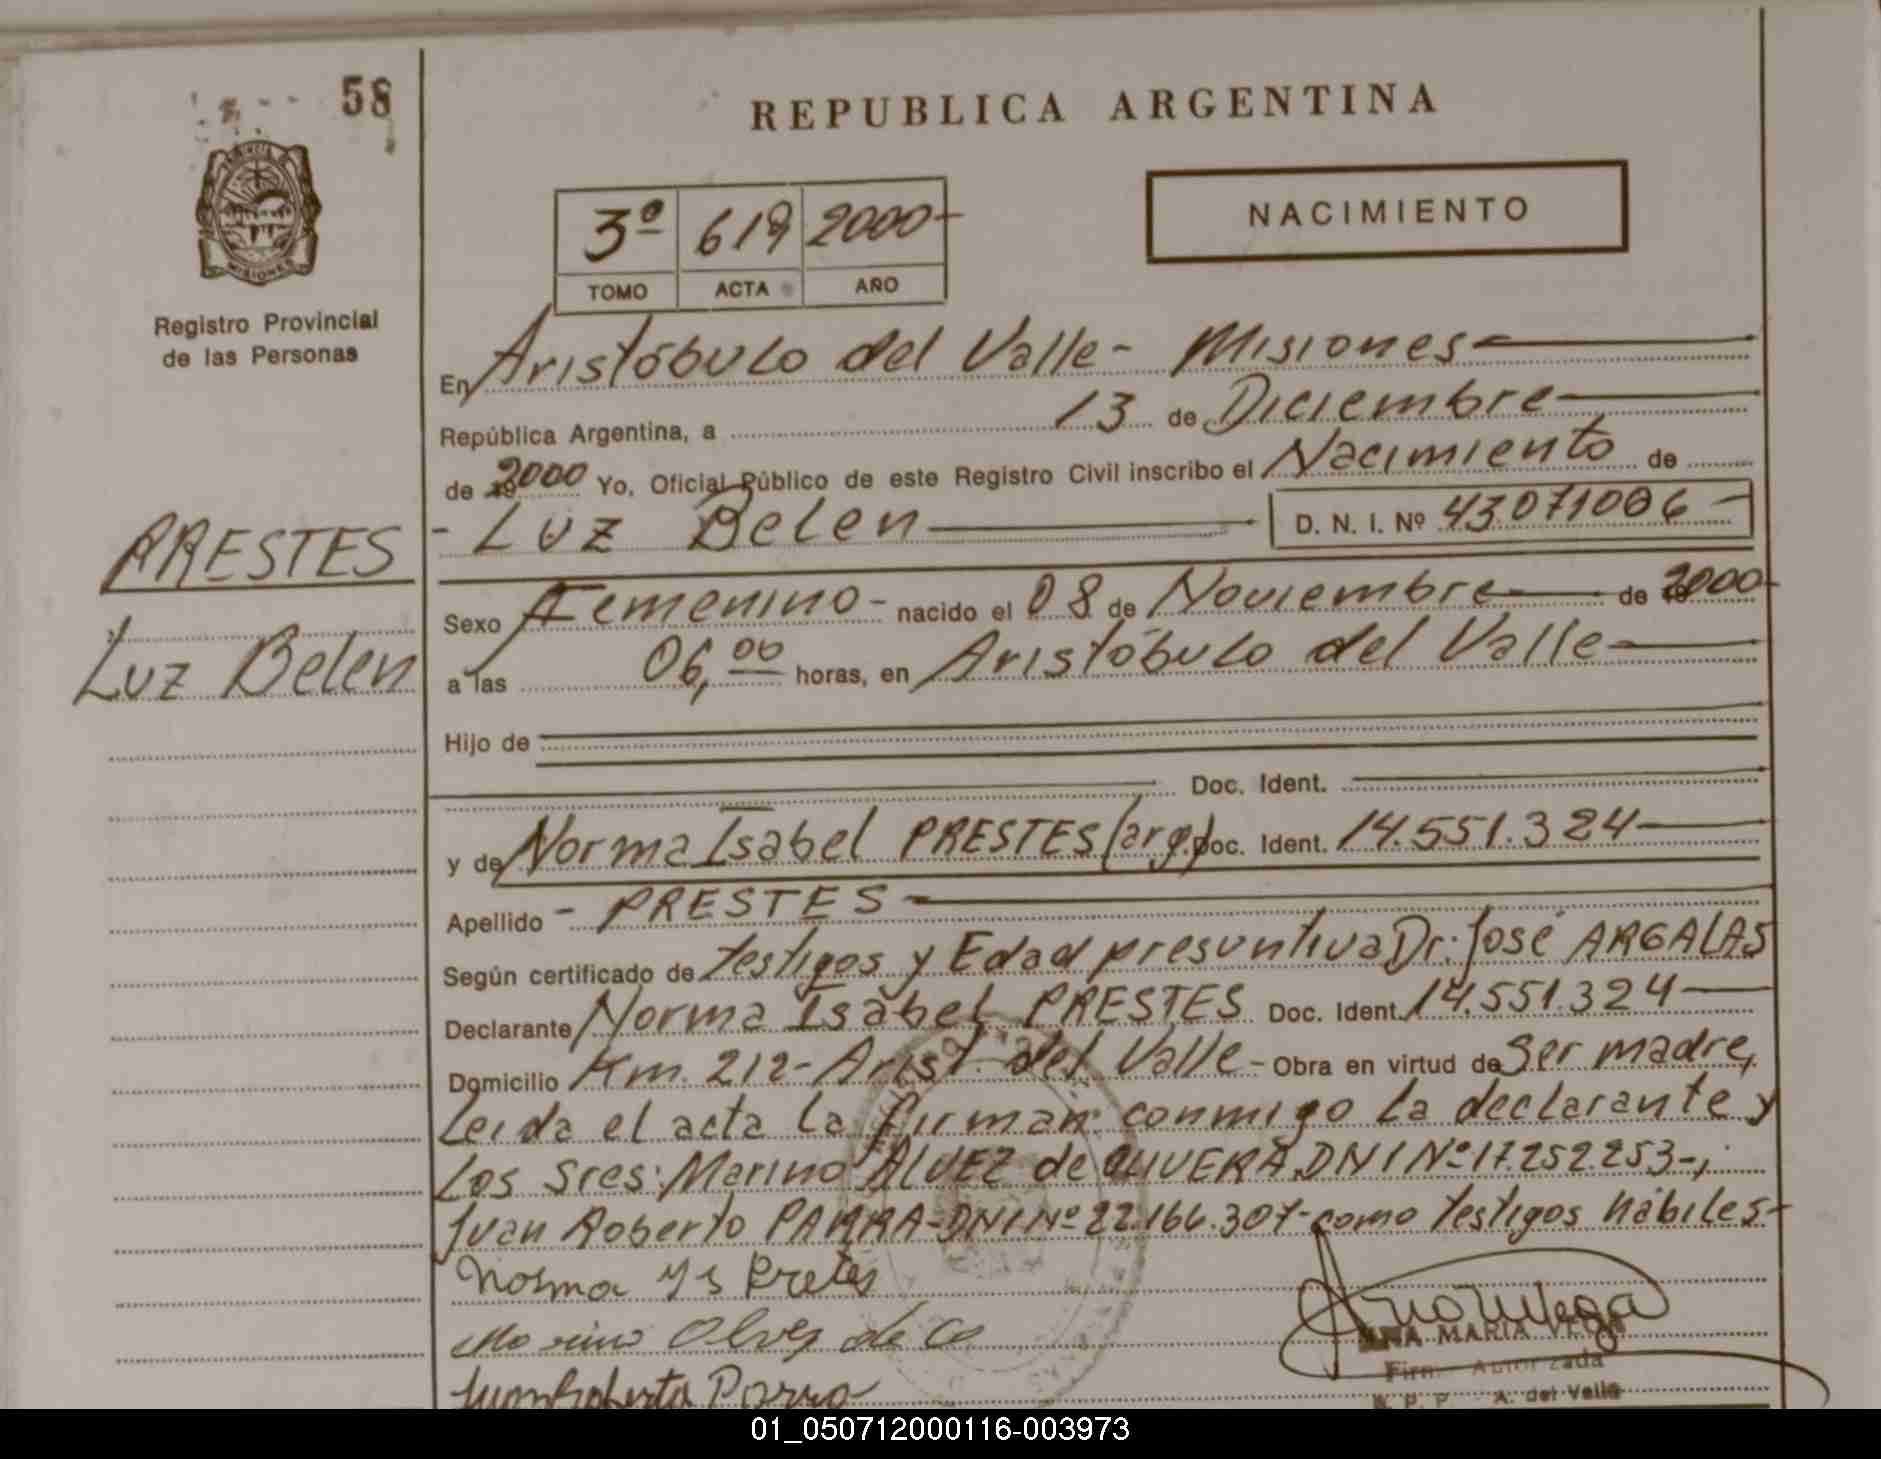 58
REPUBLICA ARGENTINA
NACIMIENTO
3º 619 2000-
TOMO ACTA AÑO
MISIONES
Registro Provincial
de las Personas
En Aristóbulo del Valle- Misiones
República Argentina, a 13 de Diciembre
de 2000 Yo, Oficial Público de este Registro Civil inscribo el Nacimiento de
PRESTES
- Luz Belen D. N. I. Nº 43.071.006-
Sexo Femenino- nacido el 08 de Noviembre de 2000-
Luz Belen
a las 06,00 horas, en Aristóbulo del Valle
Hijo de
Doc. Ident.
y de Norma Isabel PRESTES (arg.) Doc. Ident. 14.551.324
Apellido - PRESTES -
Según certificado de testigos y Edad presuntiva Dr. José ARGALAS
Declarante Norma Isabel PRESTES Doc. Ident. 14.551.324
Domicilio Km. 212- Arist. del Valle- Obra en virtud de Ser madre,
Leída el acta la firman conmigo la declarante y
los Sres: Marino ALVEZ de OLIVERA DNI Nº 17.252.253-,
Juan Roberto PARRA-DNI Nº 22.166.307-como testigos hábiles-
Norma Is Pretes
Marino Alves de
Juan Roberto Parra
ANA MARIA VEGA
Firma Autorizada
R. P. P. A. del Valle
01_050712000116-003973